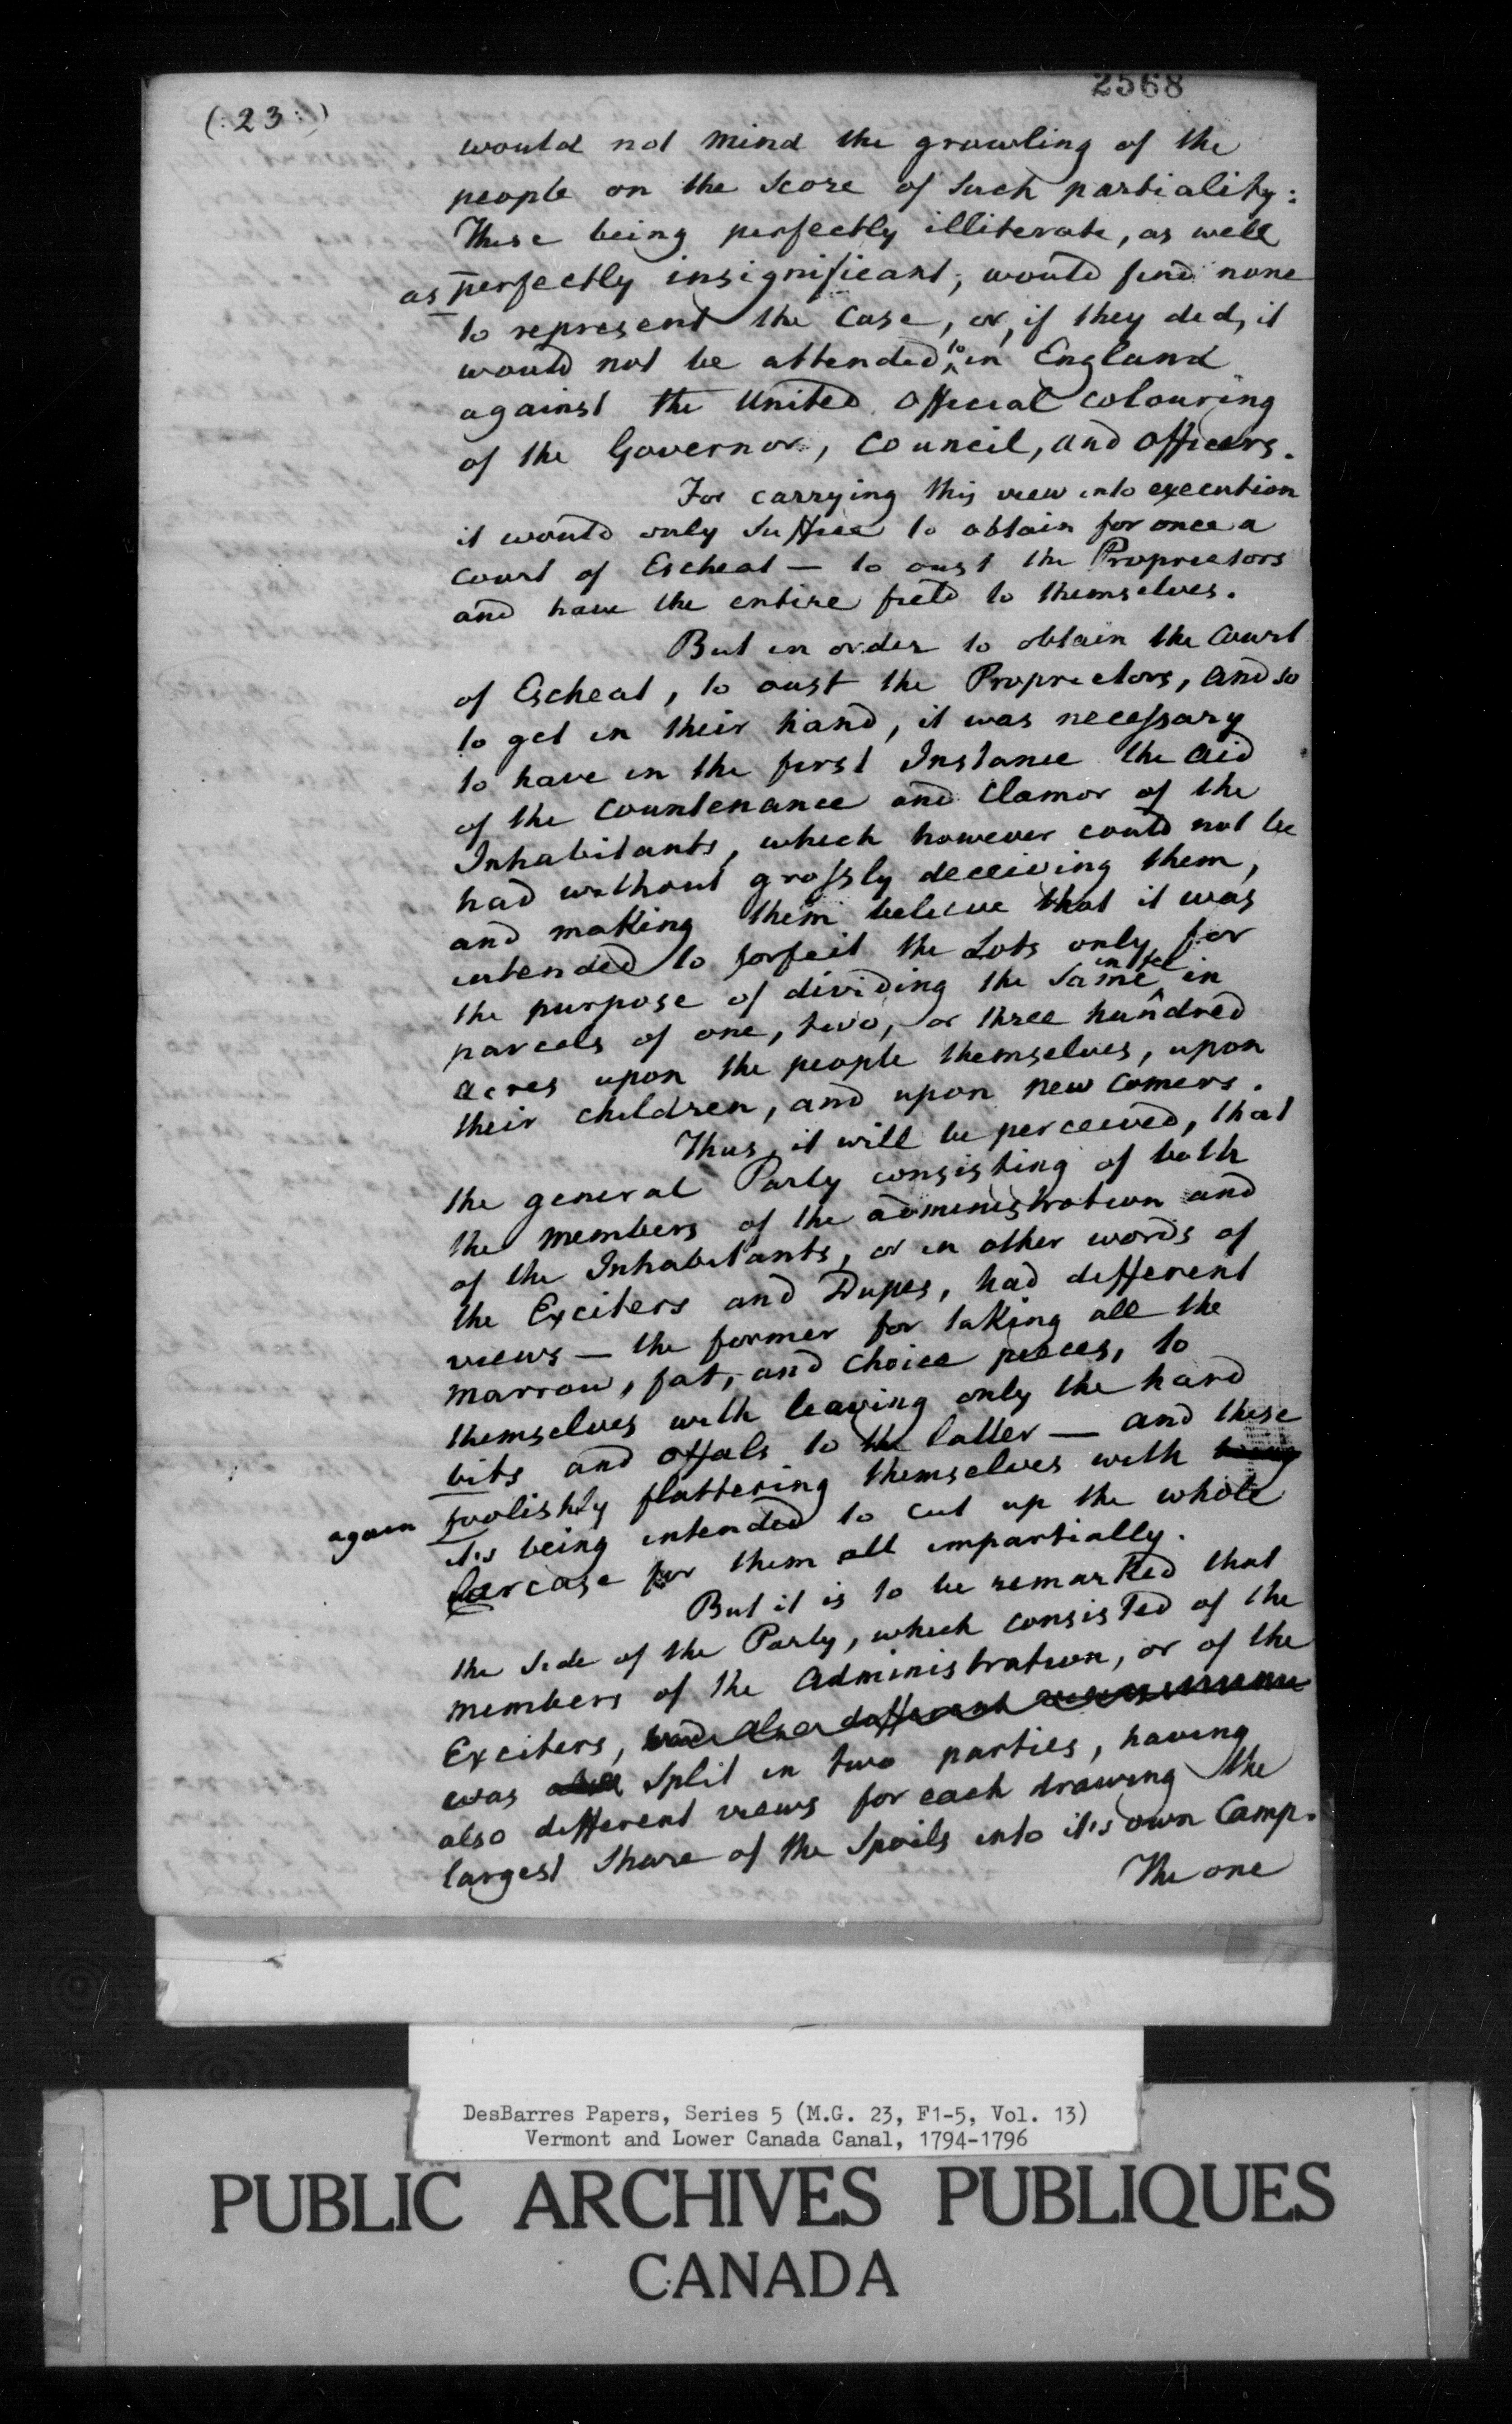 2568
(: 23 :)
would not mind the growling of the
people on the Score of Such partiality:
These being perfectly illiterate, as well
as perfectly insignificant, would find none
to represent the Case, or, if they ded, it
would not be attended to in England
against the United Official Colouring
of the Governor, Council, and Officers.
For carrying this view into execution
it would only Suffice to obtain for once a
Court of Escheat — to oust the Proprietors
and have the entire field to themselves.
But in order to obtain the Court
of Escheat, to oust the Proprietors, and so
to get in their hand, it was necessary
to have in the first Instance the Aid
of the Countenance and Clamor of the
Inhabitants, which however could not be
had without grossly deceiving them,
and making them believe that it was
intended to forfeit the Lots only for
the purpose of dividing the Same in
parcels of one, two, or three hundred
acres upon the people themselves, upon
their children, and upon new Comers.
Thus, it will be perceived, that
the general Party consisting of both
the members of the administration and
of the Inhabitants, or in other words of
the Exciters and Dupes, had different
views — the former for taking all the
marrow, fat, and Choice pieces, to
themselves with leaving only the hard
bits and offals to the latter — and these
again foolishly flattering themselves with
it's being intended to cut up the whole
Carcase for them all impartially.
But it is to be remarked that
the Side of the Party, which consisted of the
members of the Administration, or of the
Exciters, had also different
was also Split in two parties, having
also different views for each drawing the
largest Share of the Spoils into it's own Camp.
The one
DesBarres Papers, Series 5 (M.G. 23, F1-5, Vol. 13)
Vermont and Lower Canada Canal, 1794-1796
PUBLIC ARCHIVES PUBLIQUES
CANADA